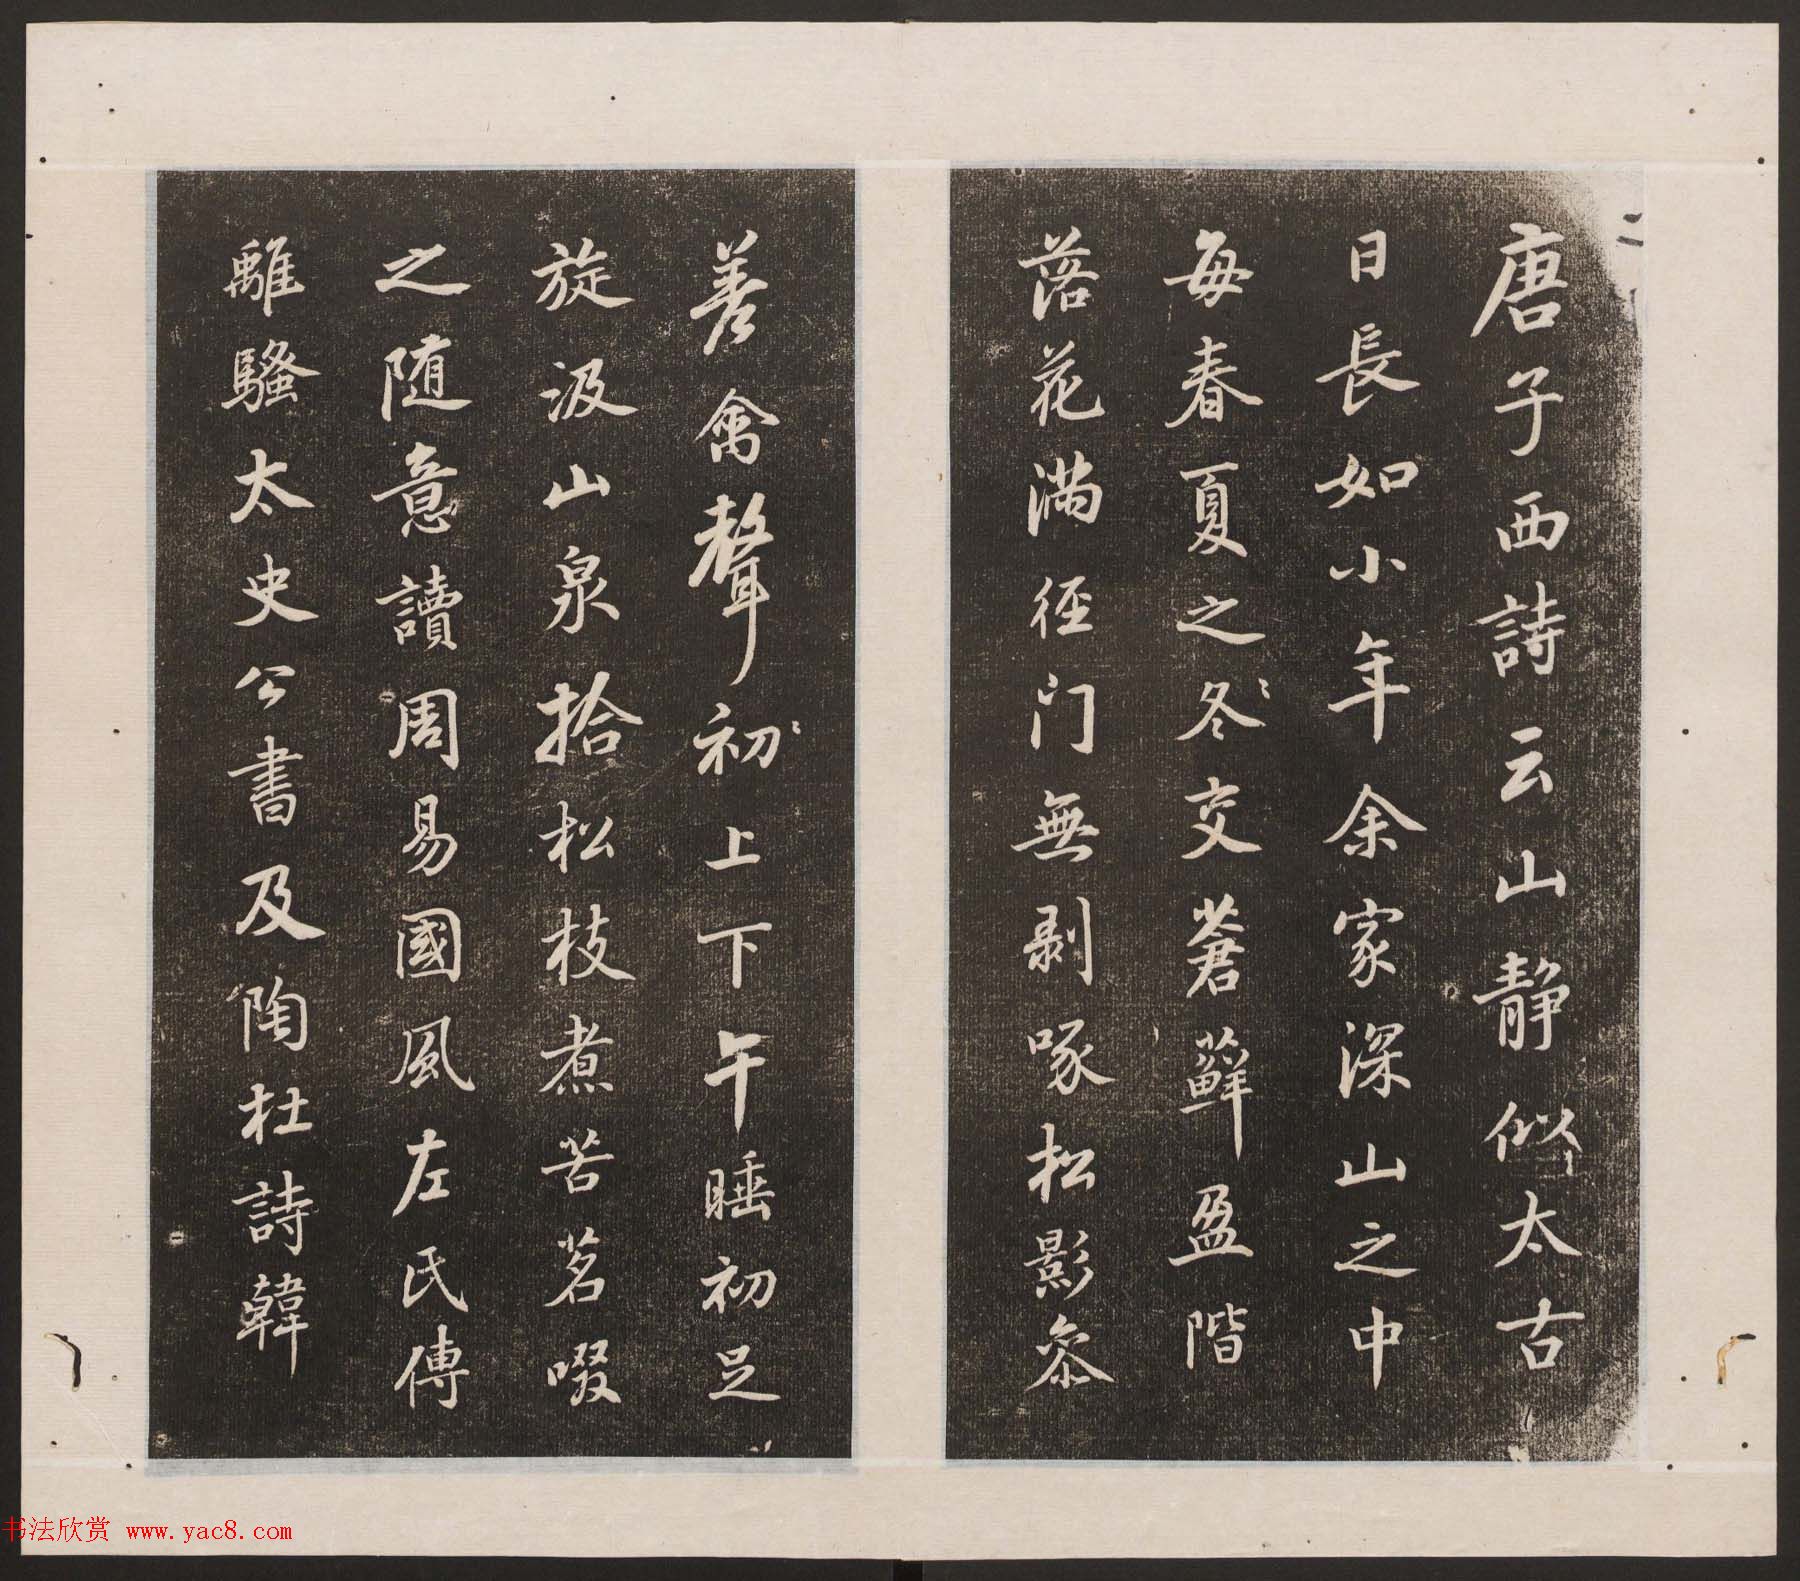 唐子西詩云山靜似太古
日長如小年余家深山之中
每春夏之冬交蒼蘚盈階
落花滿径门無剥啄松影叅
差禽聲初上下午睡初足
旋汲山泉拾松枝煮苦茗啜
之随意讀周易國風左氏傳
離騷太史公書及陶杜詩韓
书法欣赏 www.yac8.com